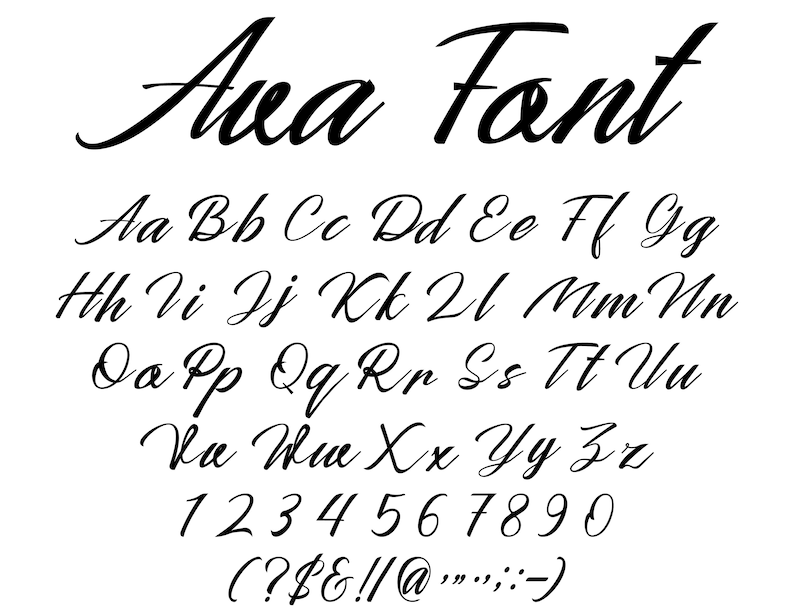 Ava Font
Aa Bb Cc Dd Ee Ff Gg
Hh Ii Jj Kk Ll Mm Nn
Oo Pp Qq Rr Ss Tt Uu
Vv Ww Xx Yy Zz
1 2 3 4 5 6 7 8 9 0
(?$&!/@,"'.,;:-)